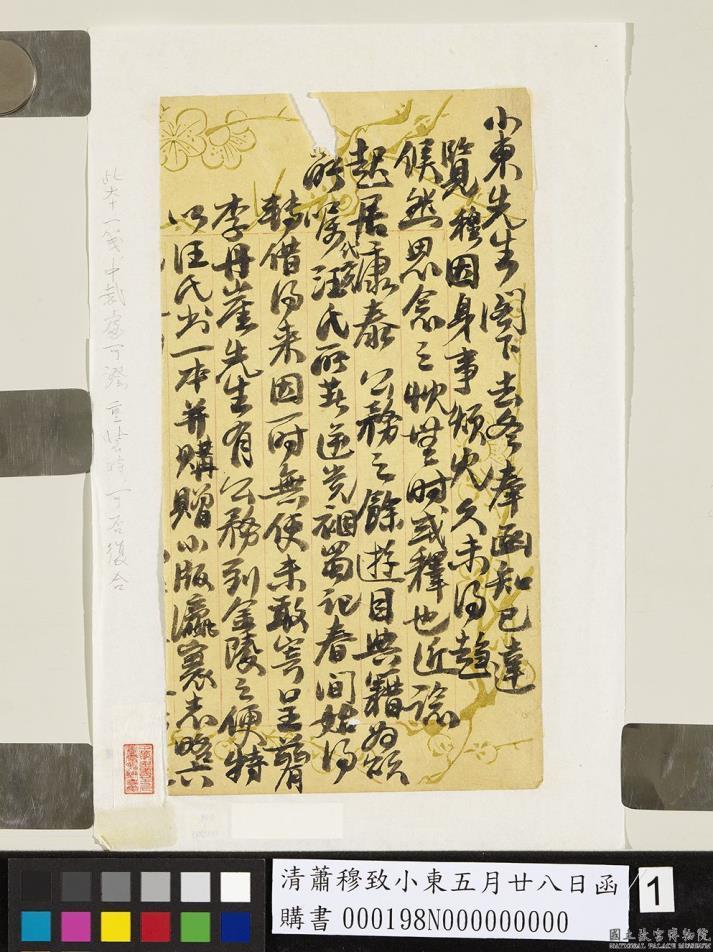 小東先生閣下去冬奉函知已達
覽穆因身事煩冗久未得趨
候然思念之忱無時或釋也近諗
起居康泰公務之餘遊目典籍為頌
所囑代汪氏所共逆党禍蜀記春間始得
轉借得來因一時無便未敢寄呈茲有
李丹崖先生有公務到金陵之便特
以汪氏書一本並購贈小版瀛寰志略六
此本十一箋中裁處可證重裝時可否復合
清蕭穆致小東五月廿八日函
購書 000198N000000000
1
國立故宮博物院
NATIONAL PALACE MUSEUM